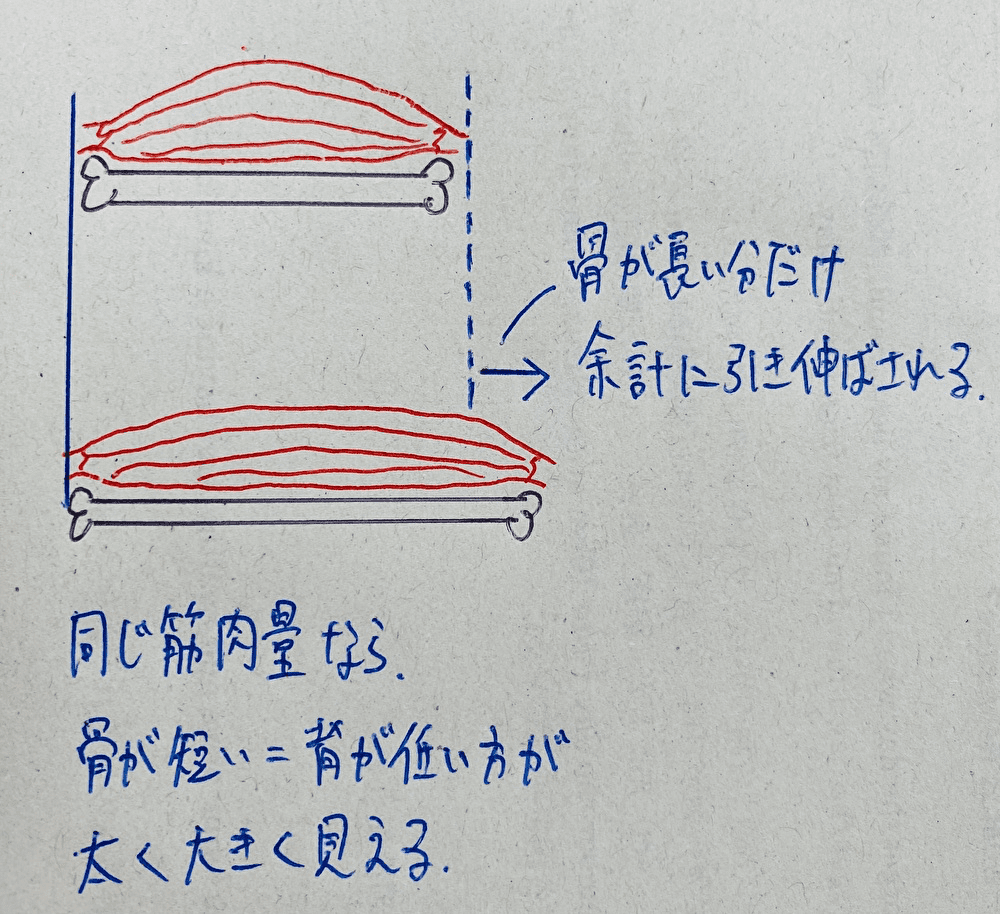 骨が長い分だけ
余計に引き伸ばされる.
同じ筋肉量なら.
骨が短い=背が低い方が
太く大きく見える.